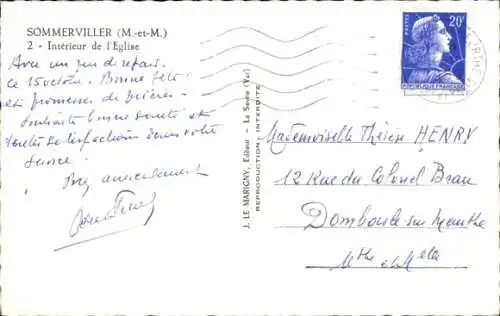 SOMMERVILLER (M.-et-M.)
2 - Intérieur de l'Eglise
Avec un peu de
ce 15 octobre. Bonne fête
et promesses de prières.
Souhaits bonne santé et
toutes satisfactions dans votre
service.
Bien amicalement
J. LE MARIGNY, Editeur - La Seyne (Var)
REPRODUCTION INTERDITE
POSTES
20F
REPUBLIQUE FRANÇAISE
Mademoiselle Thérèse HENRY
12 Rue du Colonel Brau
Dombasle sur Meurthe
Mthe et Mlle